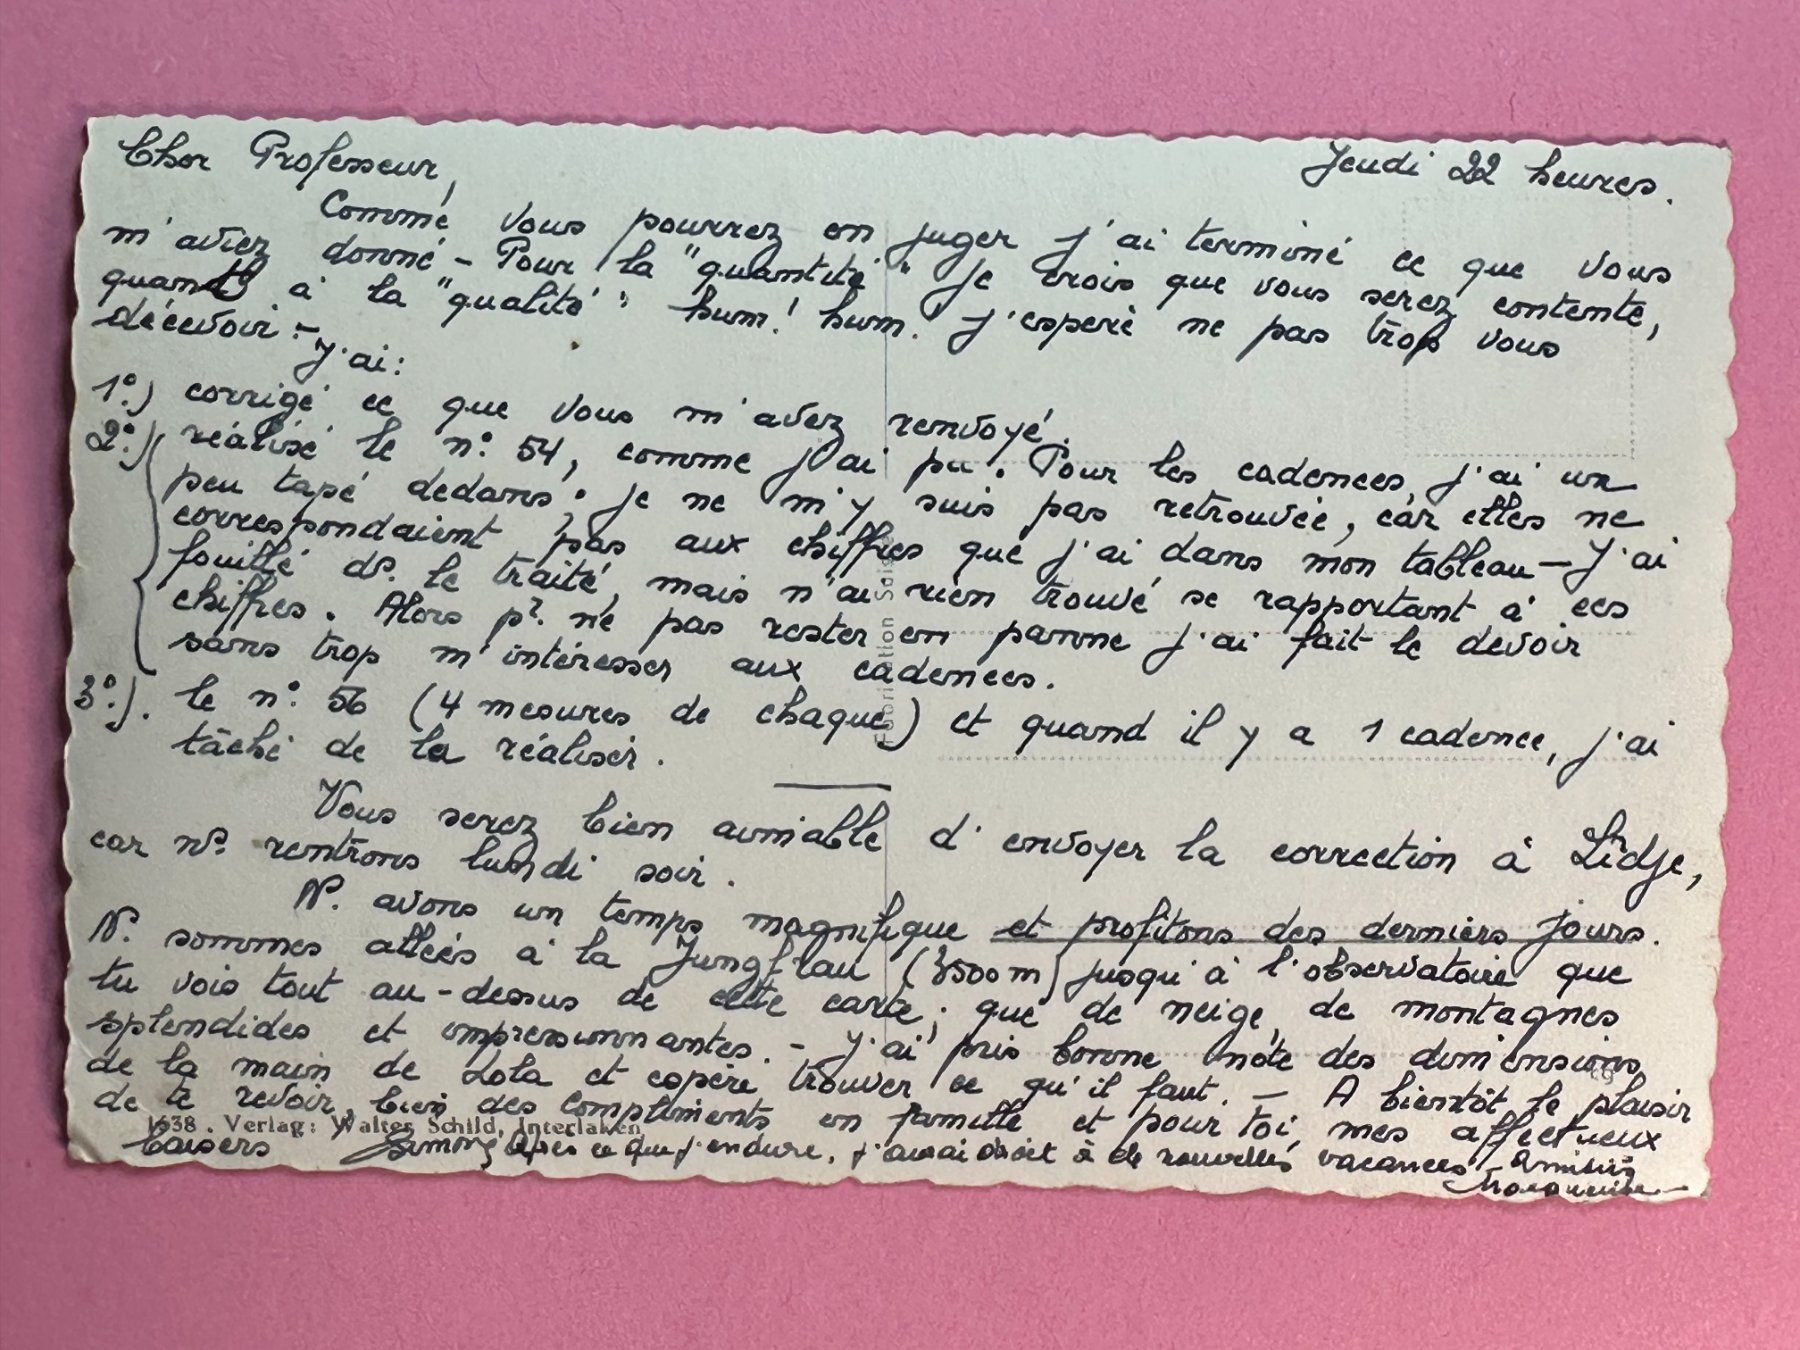 Jeudi 22 heures.
Cher Professeur,
Comme vous pourrez en juger j'ai terminé ce que vous
m'aviez donné - Pour la "quantité" je crois que vous serez contente,
quant à la "qualité" hum! hum! j'espère ne pas trop vous
décevoir -
J'ai:
1º) corrigé ce que vous m'avez renvoyé.
2º) réalisé le nº 54, comme j'ai pu. Pour les cadences, j'ai un
peu tapé dedans; je ne m'y suis pas retrouvée, car elles ne
correspondaient pas aux chiffres que j'ai dans mon tableau - J'ai
fouillé ds. le traité, mais n'ai rien trouvé se rapportant à ces
chiffres. Alors pr. ne pas rester en panne j'ai fait le devoir
sans trop m'intéresser aux cadences.
3º). le nº 56 (4 mesures de chaque) et quand il y a 1 cadence, j'ai
tâché de la réaliser.
Vous serez bien aimable d'envoyer la correction à
car ns. rentrons lundi soir.
N. avons un temps magnifique et profitons des derniers jours.
N. sommes allées à la Jungfrau (3500 m) jusqu'à l'observatoire que
tu vois tout au-dessus de cette carte; que de neige, de montagnes
splendides et impressionnantes. - J'ai pris bonne note des dimensions
de la main de Lola et espère trouver ce qu'il faut. - A bientôt le plaisir
de te revoir, bien des compliments en famille et pour toi, mes affectueux
baisers Simone Après ce que j'endure, j'aurai droit à de nouvelles vacances Amitiés
Marguerite
1638. Verlag: Walter Schild, Interlaken